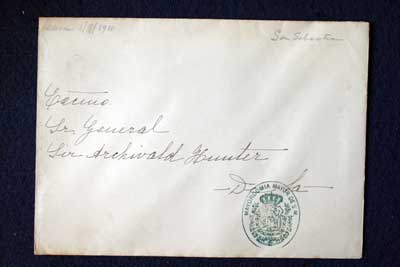 San Sebastian
Excmo.
Sr. General
Sir Archivald Hunter
MAYORDOMIA MAYOR DE S.M.